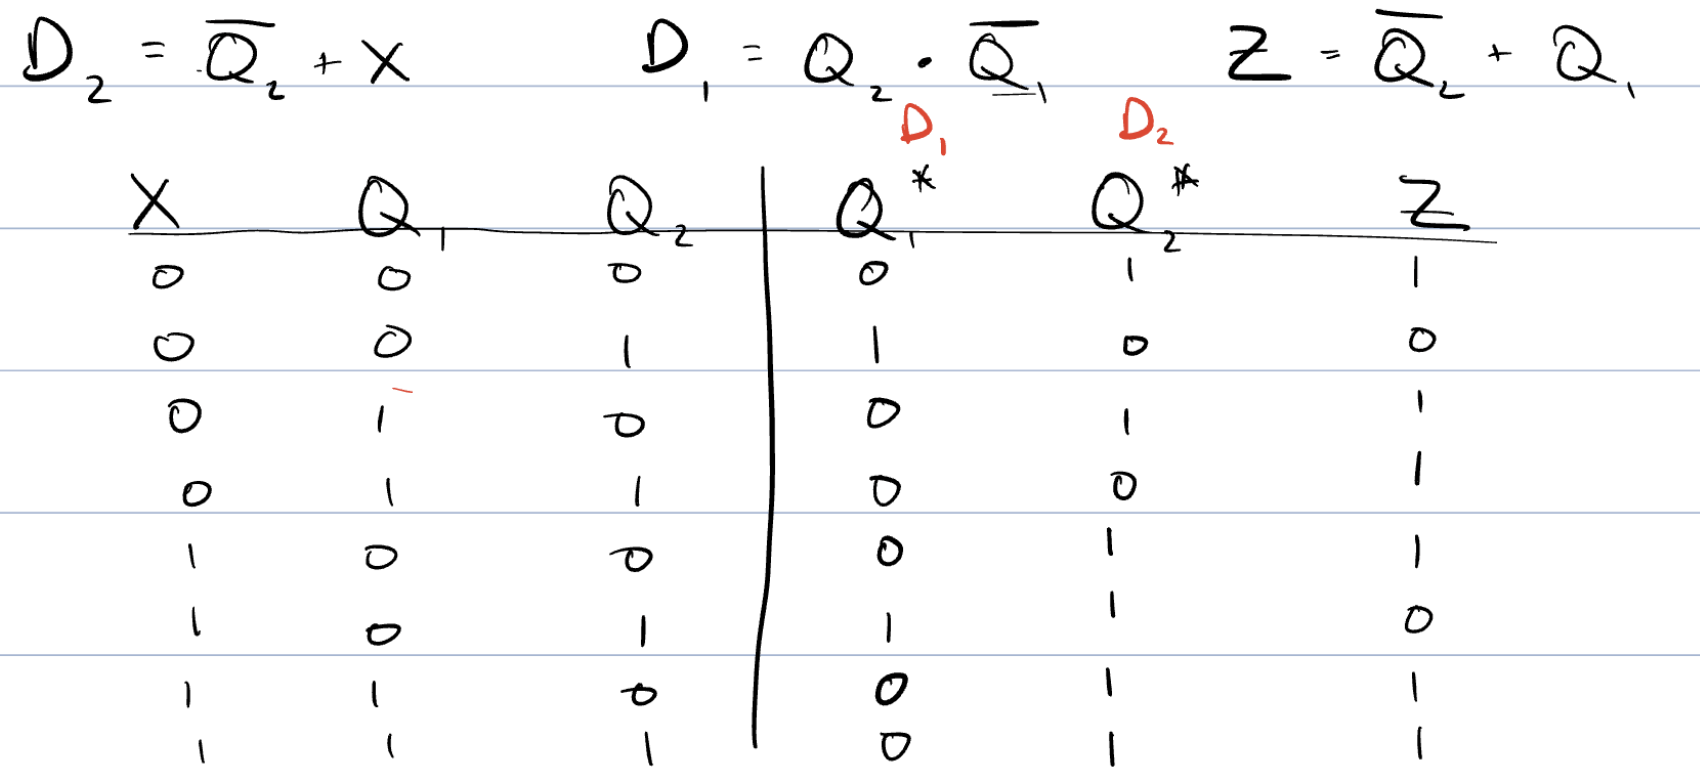 D₂ = Q̅₂ + X D₁ = Q₂ · Q̅₁ Z = Q̅₂ + Q₁
D₁ D₂
X Q₁ Q₂ Q₁* Q₂* Z
0 0 0 0 1 1
0 0 1 1 0 0
0 1 0 0 1 1
0 1 1 0 0 1
1 0 0 0 1 1
1 0 1 1 1 0
1 1 0 0 1 1
1 1 1 0 1 1